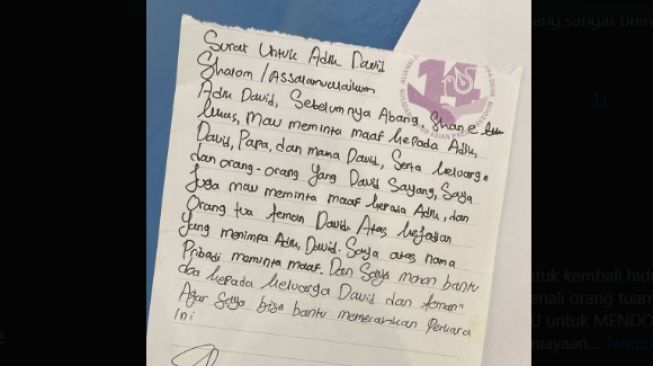 Surat Untuk Adik David
Shalom / Assalamualaikum
Adik David, Sebelumnya Abang Shane
lukas, mau meminta maaf kepada Adik,
David, Papa, dan mama David, Serta keluarga
dan orang-orang Yang David Sayang, Saya
Juga mau meminta maaf kepada Adik, dan
Orang tua teman David. Atas kejadian
Yang menimpa Adik, David. Saya atas nama
Pribadi meminta maaf. Dan Saya mohon bantu
doa kepada keluarga David dan teman"
Agar Saya bisa bantu memecahkan Perkara
Ini
untuk kembali hid
enali orang tuan
U untuk MENDO
niayaan... Tampi